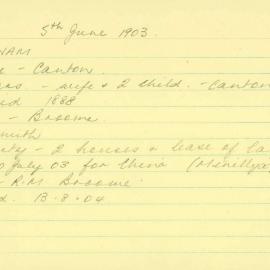 5th June 1903.
NAM
e - Canton.
as - wife & 2 child. - Canton
d 1888
- Broome.
muth
ty - 2 houses & lease of la
July 03 for China (Menilly
- R.M. Broome.
d. 13.8.04